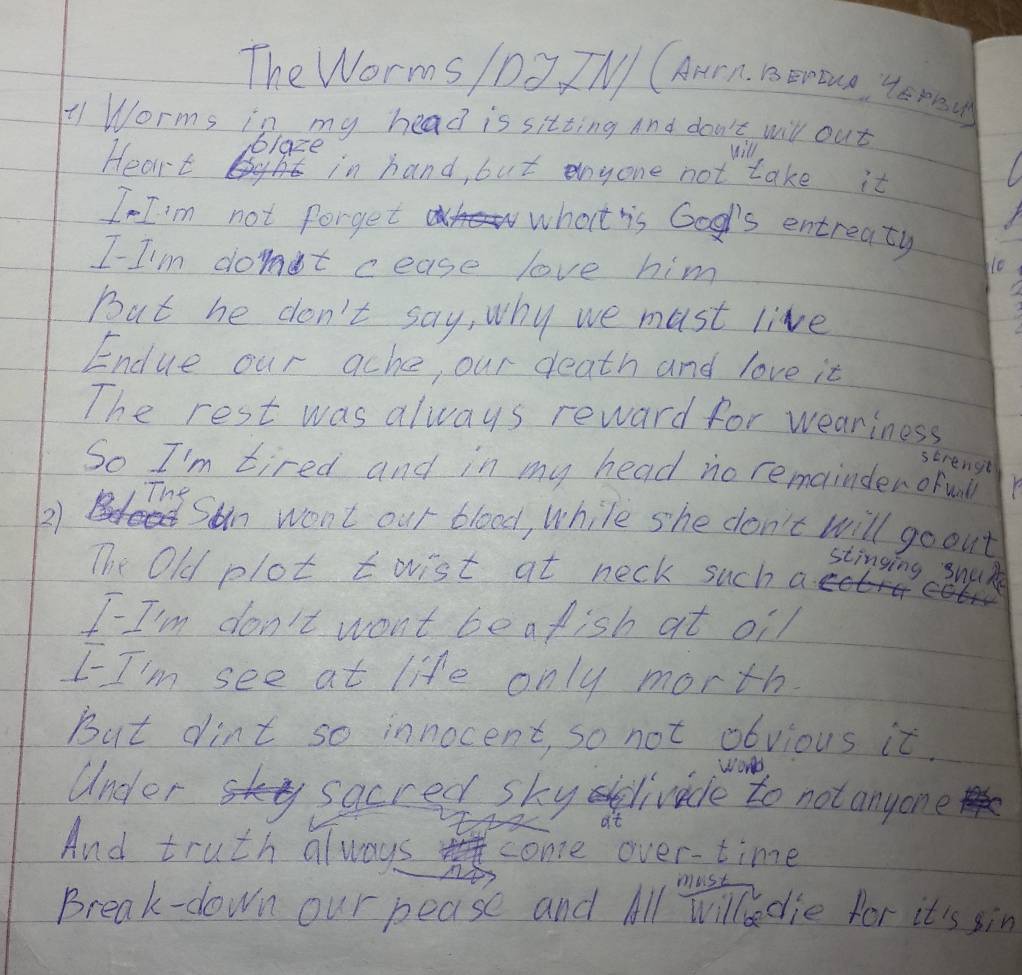 The Worms /DJIN/ (Англ. версия "Черви")
1) Worms in my head is sitting and don't will out
Heart blaze in hand, but anyone not will take it
I-I'm not forget what is God's entreaty
I-I'm do not cease love him
But he don't say, why we must live
Endue our ache, our death and love it
The rest was always reward for weariness
So I'm tired and in my head no remainder of will strengt
2) The Sun wont our blood, while she don't will go out
The Old plot twist at neck such a stinging snake
I-I'm don't wont be a fish at oil
I-I'm see at life only morth.
But dint so innocent, so not obvious it.
Under sacred sky divide word to not anyone
And truth always come at over-time
Break-down our pease and All must die for it's sin